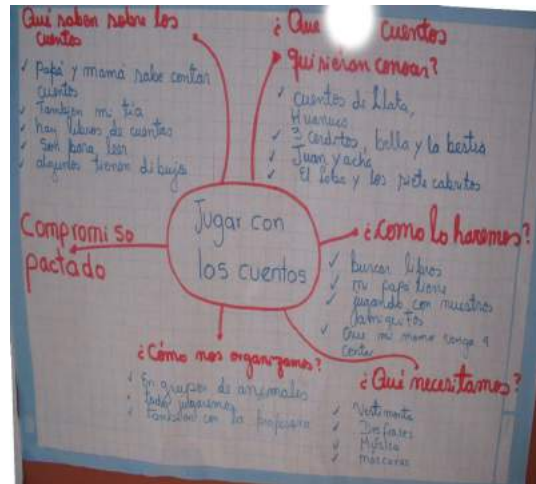 Qué saben sobre los
cuentos
✓ Papá y mamá sabe contar
cuentos
✓ Tambien mi tía
✓ hay libros de cuentos
✓ Son para leer
✓ algunos tienen dibujos
¿ Que cuentos
quisieran conocer?
✓ cuentos de Llata,
Huanuco
✓ 3 cerditos, bella y la bestia
✓ Juan y acha
✓ El lobo y los siete cabritos
Jugar con
los cuentos
Compromiso
pactado
¿Como lo haremos?
✓ buscar libros
✓ mi papá tiene
✓ jugando con nuestros
amiguitos
✓ Que mi mamá venga a
¿Cómo nos organizamos?
✓ En grupos de animales
✓ todos jugaremos
✓ tambien con la profesora
¿Qué necesitamos?
✓ Vestimenta
✓ Disfraces
✓ Música
✓ mascaras